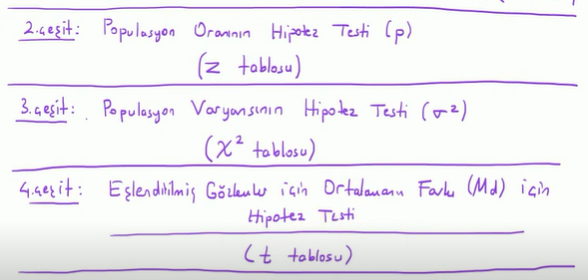 2.çeşit: Populasyon Oranının Hipotez Testi (p)
(z tablosu)
3.çeşit: Populasyon Varyansının Hipotez Testi (σ²)
(χ² tablosu)
4.çeşit: Eşlendirilmiş Gözlemler için Ortalamanın Farkı (Md) için
Hipotez Testi
(t tablosu)